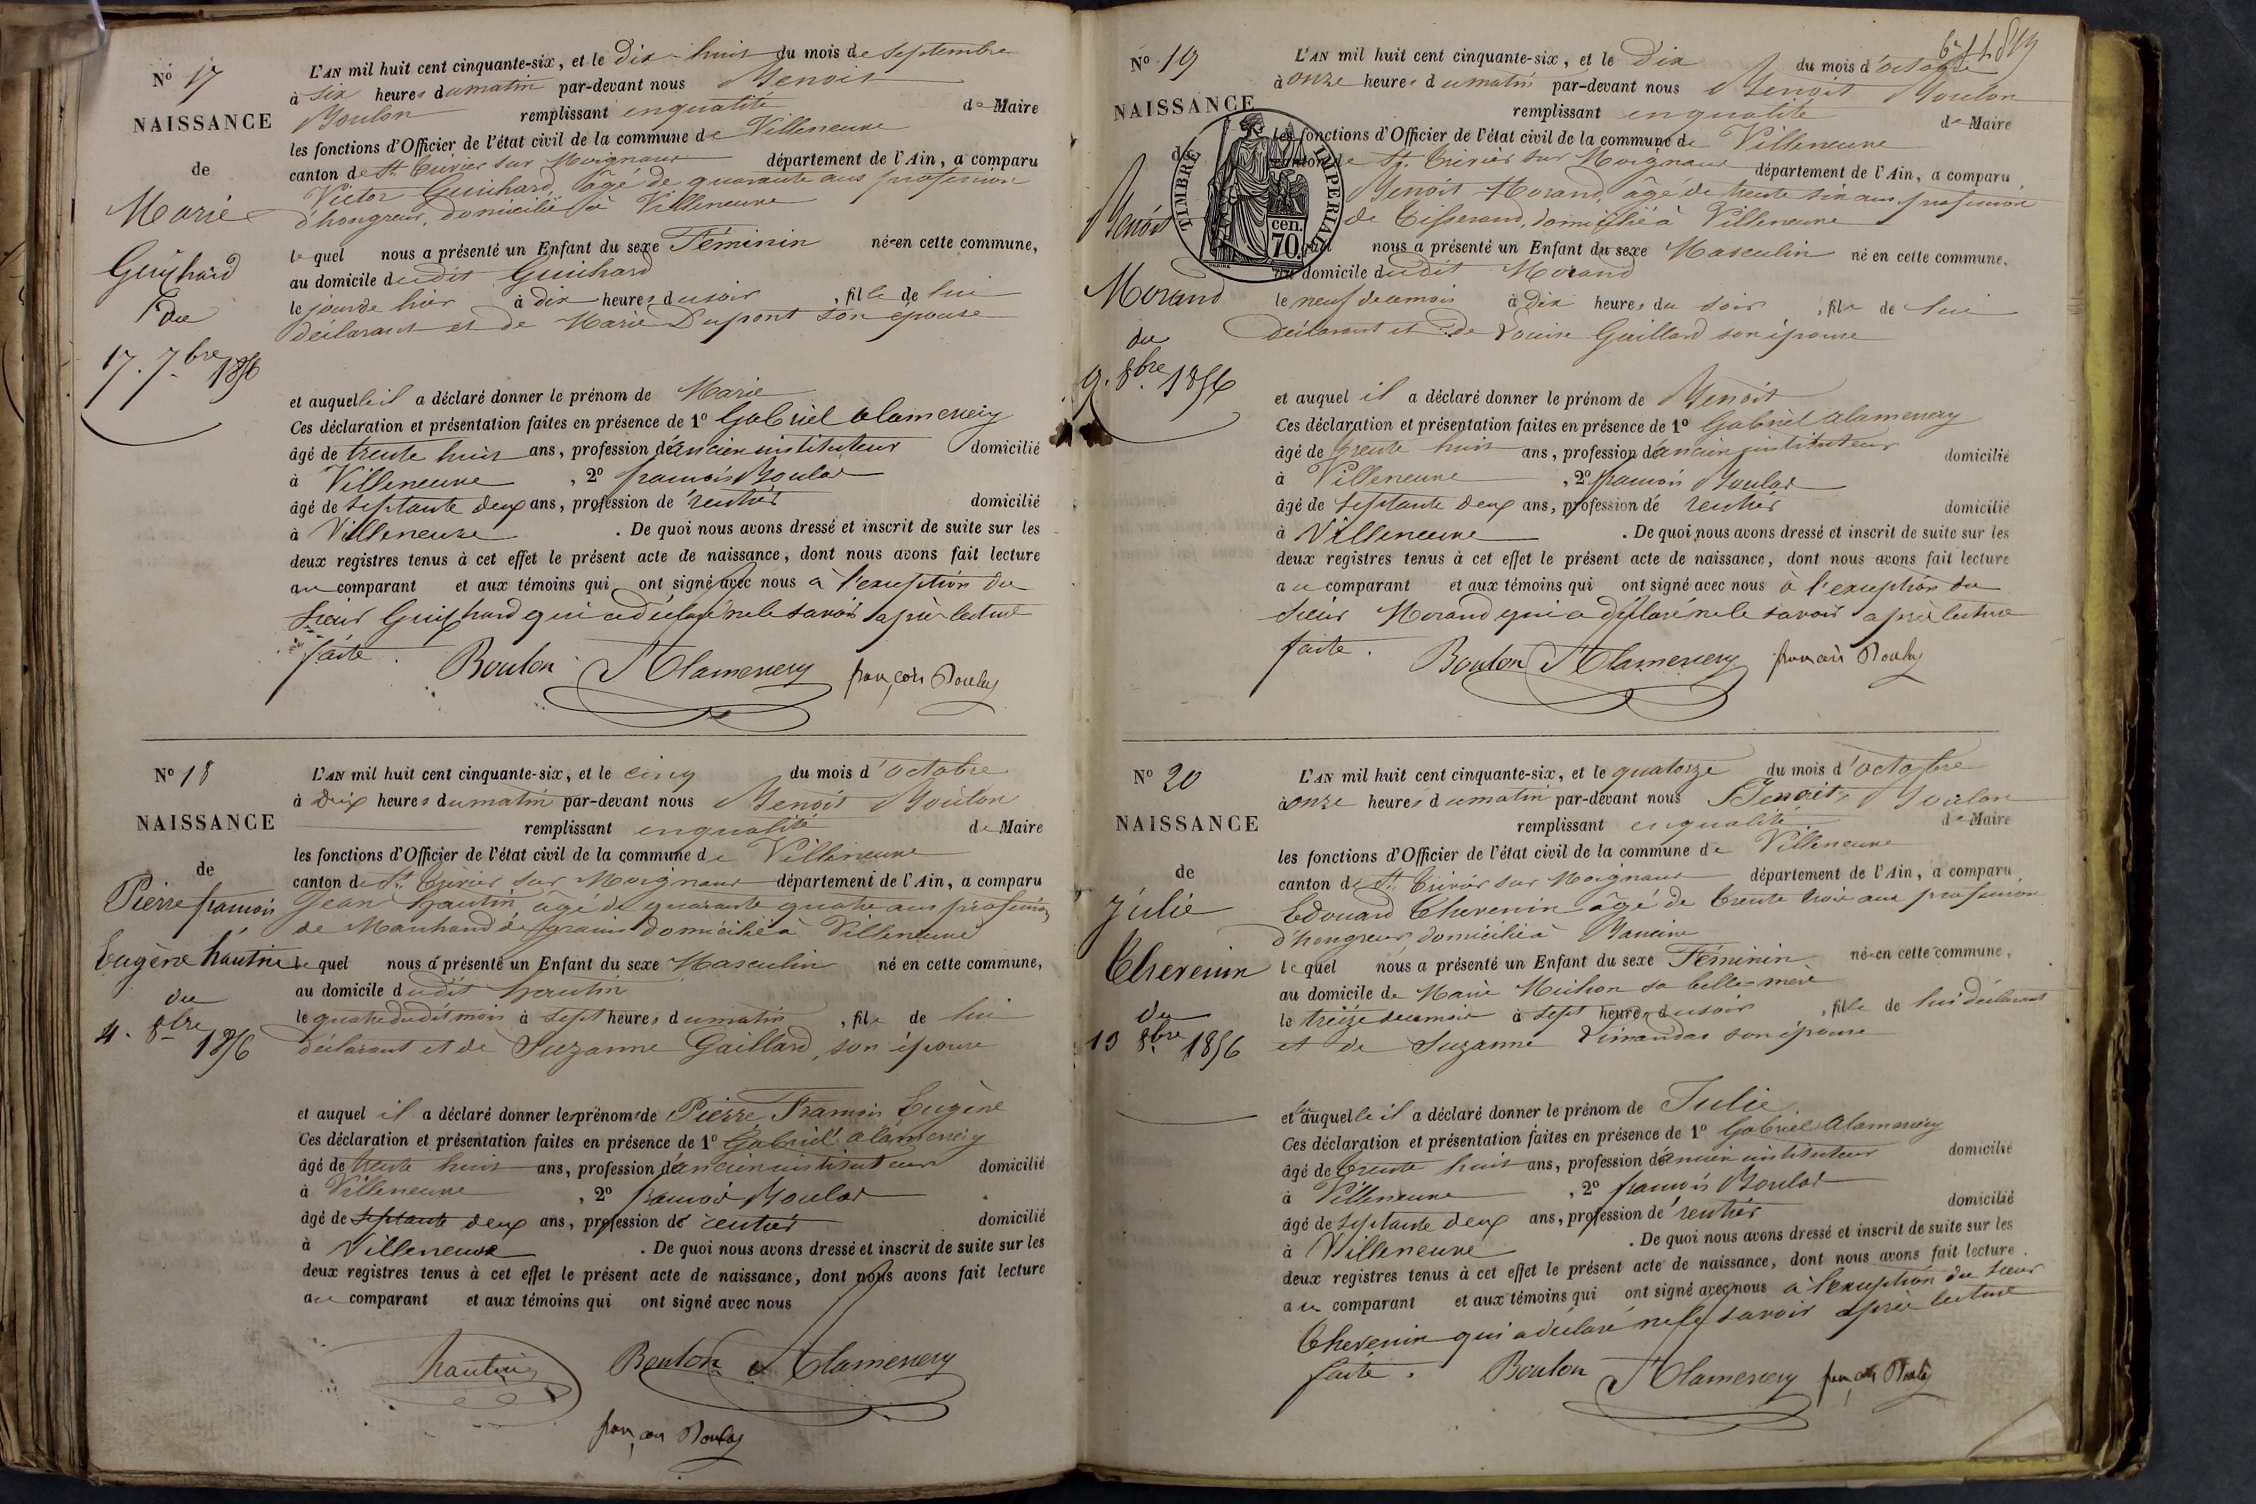 N° 17
NAISSANCE
de
Marie
Guichard
du
17. 7bre 1856
L'AN mil huit cent cinquante-six, et le dix-huit du mois de septembre
à six heures du matin par-devant nous Benoit
Boulon remplissant en qualité de Maire
les fonctions d'Officier de l'état civil de la commune de Villeneuve
canton de St Trivier sur Moignans département de l'Ain, a comparu
Victor Guichard, âgé de quarante ans profession
d'hongreur, domicilié à Villeneuve
lequel nous a présenté un Enfant du sexe Féminin née en cette commune,
au domicile dudit Guichard
le jour de hier à dix heures du soir, fille de lui
déclarant et de Marie Dupont son épouse
et auquelle il a déclaré donner le prénom de Marie
Ces déclaration et présentation faites en présence de 1° Gabriel Alamercery
âgé de trente huit ans, profession d'ancien instituteur domicilié
à Villeneuve, 2° françois Boulas
âgé de septante deux ans, profession de rentier domicilié
à Villeneuve. De quoi nous avons dressé et inscrit de suite sur les
deux registres tenus à cet effet le présent acte de naissance, dont nous avons fait lecture
au comparant et aux témoins qui ont signé avec nous à l'exception du
sieur Guichard qui a déclaré ne le savoir après lecture
faite.
Boulon Alamercery françois Boulas
N° 18
NAISSANCE
de
Pierre françois
Eugène hautin
du
4. 8bre 1856
L'AN mil huit cent cinquante-six, et le cinq du mois d'octobre
à dix heures du matin par-devant nous Benoit Boulon
remplissant en qualité de Maire
les fonctions d'Officier de l'état civil de la commune de Villeneuve
canton de St Trivier sur Moignans département de l'Ain, a comparu
Jean hautin âgé de quarante quatre ans profession
de Marchand de grains domicilié à Villeneuve
lequel nous a présenté un Enfant du sexe Masculin né en cette commune,
au domicile dudit hautin
le quatre dudit mois à sept heures du matin, fils de lui
déclarant et de Suzanne Gaillard, son épouse
et auquel il a déclaré donner les prénoms de Pierre François Eugène
Ces déclaration et présentation faites en présence de 1° Gabriel Alamercery
âgé de trente huit ans, profession d'ancien instituteur domicilié
à Villeneuve, 2° françois Boulas
âgé de septante deux ans, profession de rentier domicilié
à Villeneuve. De quoi nous avons dressé et inscrit de suite sur les
deux registres tenus à cet effet le présent acte de naissance, dont nous avons fait lecture
au comparant et aux témoins qui ont signé avec nous
hautin Boulon Alamercery
françois Boulas
N° 19
NAISSANCE
de
Benoit
Morand
du
9. 8bre 1856
TIMBRE IMPERIAL
70 cen.
L'AN mil huit cent cinquante-six, et le dix du mois d'octobre
à onze heures du matin par-devant nous Benoit Boulon
remplissant en qualité de Maire
les fonctions d'Officier de l'état civil de la commune de Villeneuve
canton de St. Trivier sur Moignans département de l'Ain, a comparu
Benoit Morand, âgé de trente six ans profession
de Tisserand, domicilié à Villeneuve
lequel nous a présenté un Enfant du sexe Masculin né en cette commune,
au domicile dudit Morand
le neuf de ce mois à dix heures du soir, fils de lui
déclarant et de Louise Guillard son épouse
et auquel il a déclaré donner le prénom de Benoit
Ces déclaration et présentation faites en présence de 1° Gabriel Alamercery
âgé de trente huit ans, profession d'ancien instituteur domicilié
à Villeneuve, 2° françois Boulas
âgé de septante deux ans, profession de rentier domicilié
à Villeneuve. De quoi nous avons dressé et inscrit de suite sur les
deux registres tenus à cet effet le présent acte de naissance, dont nous avons fait lecture
au comparant et aux témoins qui ont signé avec nous à l'exception du
sieur Morand qui a déclaré ne le savoir après lecture
faite.
Boulon Alamercery françois Boulas
N° 20
NAISSANCE
de
Julie
Thevenin
du
13 8bre 1856
L'AN mil huit cent cinquante-six, et le quatorze du mois d'octobre
à onze heures du matin par-devant nous Benoit Boulon
remplissant en qualité de Maire
les fonctions d'Officier de l'état civil de la commune de Villeneuve
canton de St. Trivier sur Moignans département de l'Ain, a comparu
Edouard Thevenin âgé de trente trois ans profession
d'hongreur, domicilié à
lequel nous a présenté un Enfant du sexe Féminin née en cette commune,
au domicile de Marie Michon sa belle-mère
le treize de ce mois à sept heures du soir, fille de lui déclarant
et de Suzanne son épouse
et auquelle il a déclaré donner le prénom de Julie
Ces déclaration et présentation faites en présence de 1° Gabriel Alamercery
âgé de trente huit ans, profession d'ancien instituteur domicilié
à Villeneuve, 2° françois Boulas
âgé de septante deux ans, profession de rentier domicilié
à Villeneuve. De quoi nous avons dressé et inscrit de suite sur les
deux registres tenus à cet effet le présent acte de naissance, dont nous avons fait lecture
au comparant et aux témoins qui ont signé avec nous à l'exception du sieur
Thevenin qui a déclaré ne le savoir après lecture
faite.
Boulon Alamercery françois Boulas